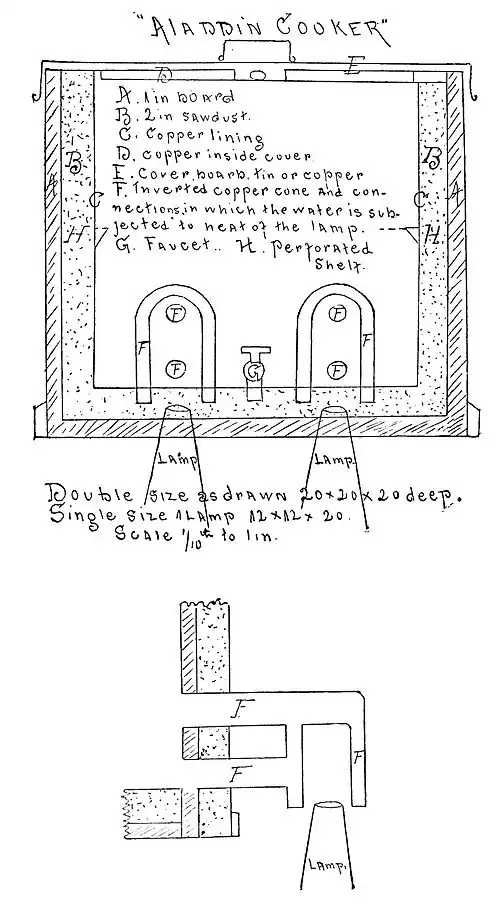 "Aladdin Cooker"
D
E
A. 1 in board
B. 2 in sawdust.
C. Copper lining
D. copper inside cover
E. Cover, board, tin or copper
F. Inverted copper cone and con-
nections, in which the water is sub-
jected to heat of the lamp.
G. Faucet.. H. Perforated
Shelf.
B
B
A
A
C
C
H
H
F
F
F
F
G
F
F
Lamp
Lamp.
Double size as drawn 20 × 20 × 20 deep.
Single size 1 Lamp 12 × 12 × 20.
Scale 1/10th to 1 in.
F
F
F
Lamp.